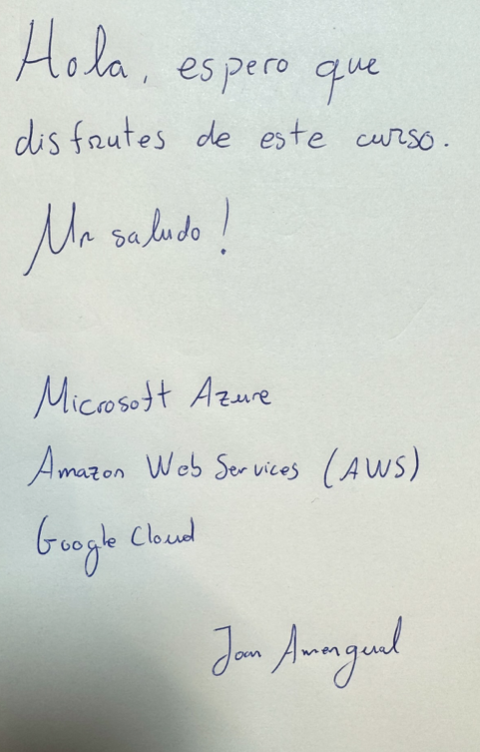 Hola, espero que
disfrutes de este curso.
Un saludo!
Microsoft Azure
Amazon Web Services (AWS)
Google Cloud
Joan Amengual